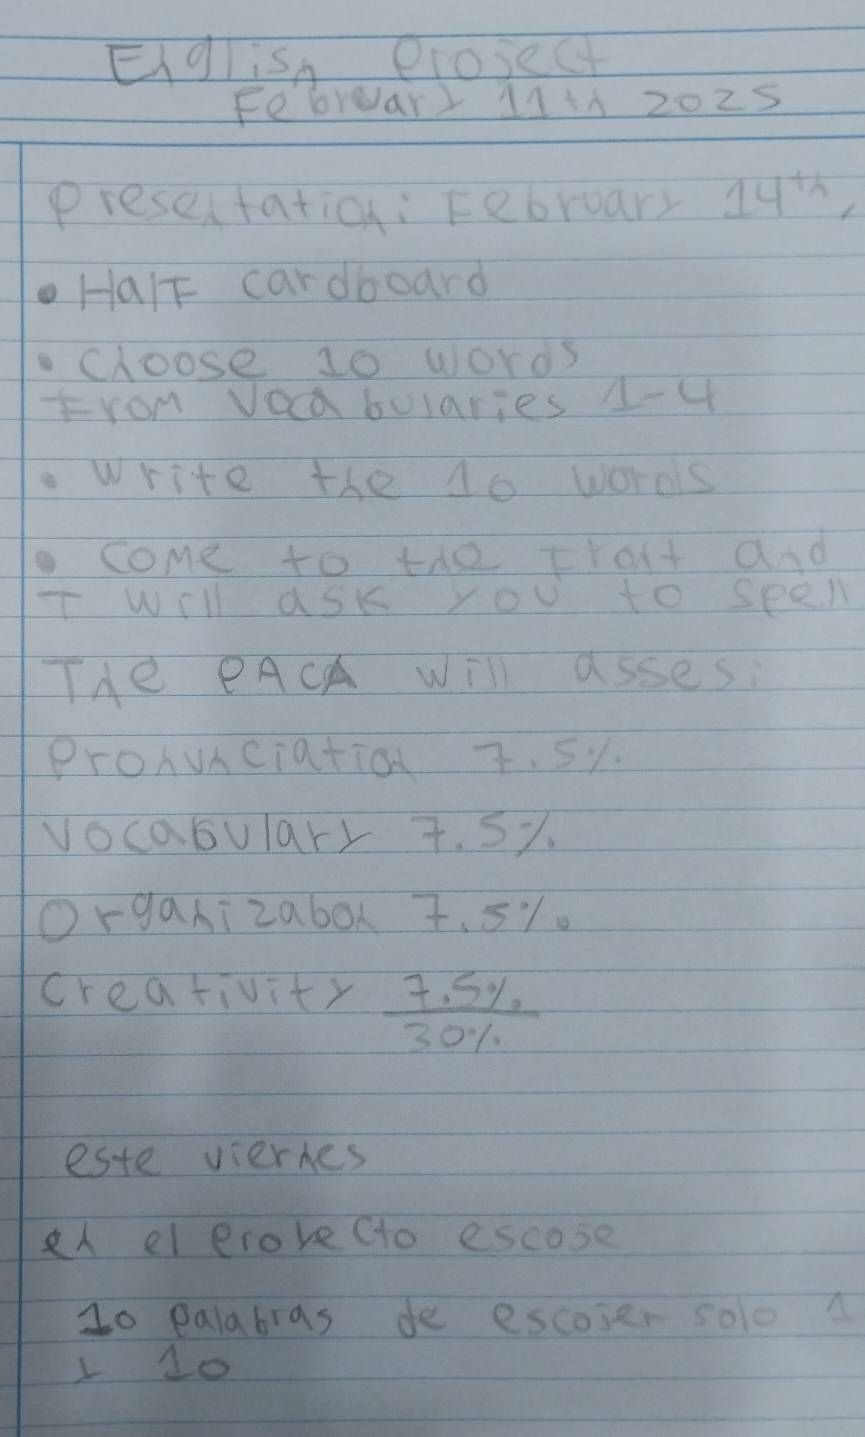 English Project
February 11th 2025
Presentation: February 14th,
• Half cardboard
• choose 10 words
From Vocabularies 1-4
• write the 10 words
• come to the front and
I will ask you to spell
The PACA will asses:
Pronunciation 7.5%
Vocabulary 7.5%
Organizabon 7.5%
Creativity 7.5%
30%
este viernes
en el proyecto escoje
10 palabras de escojer solo 1
y 10